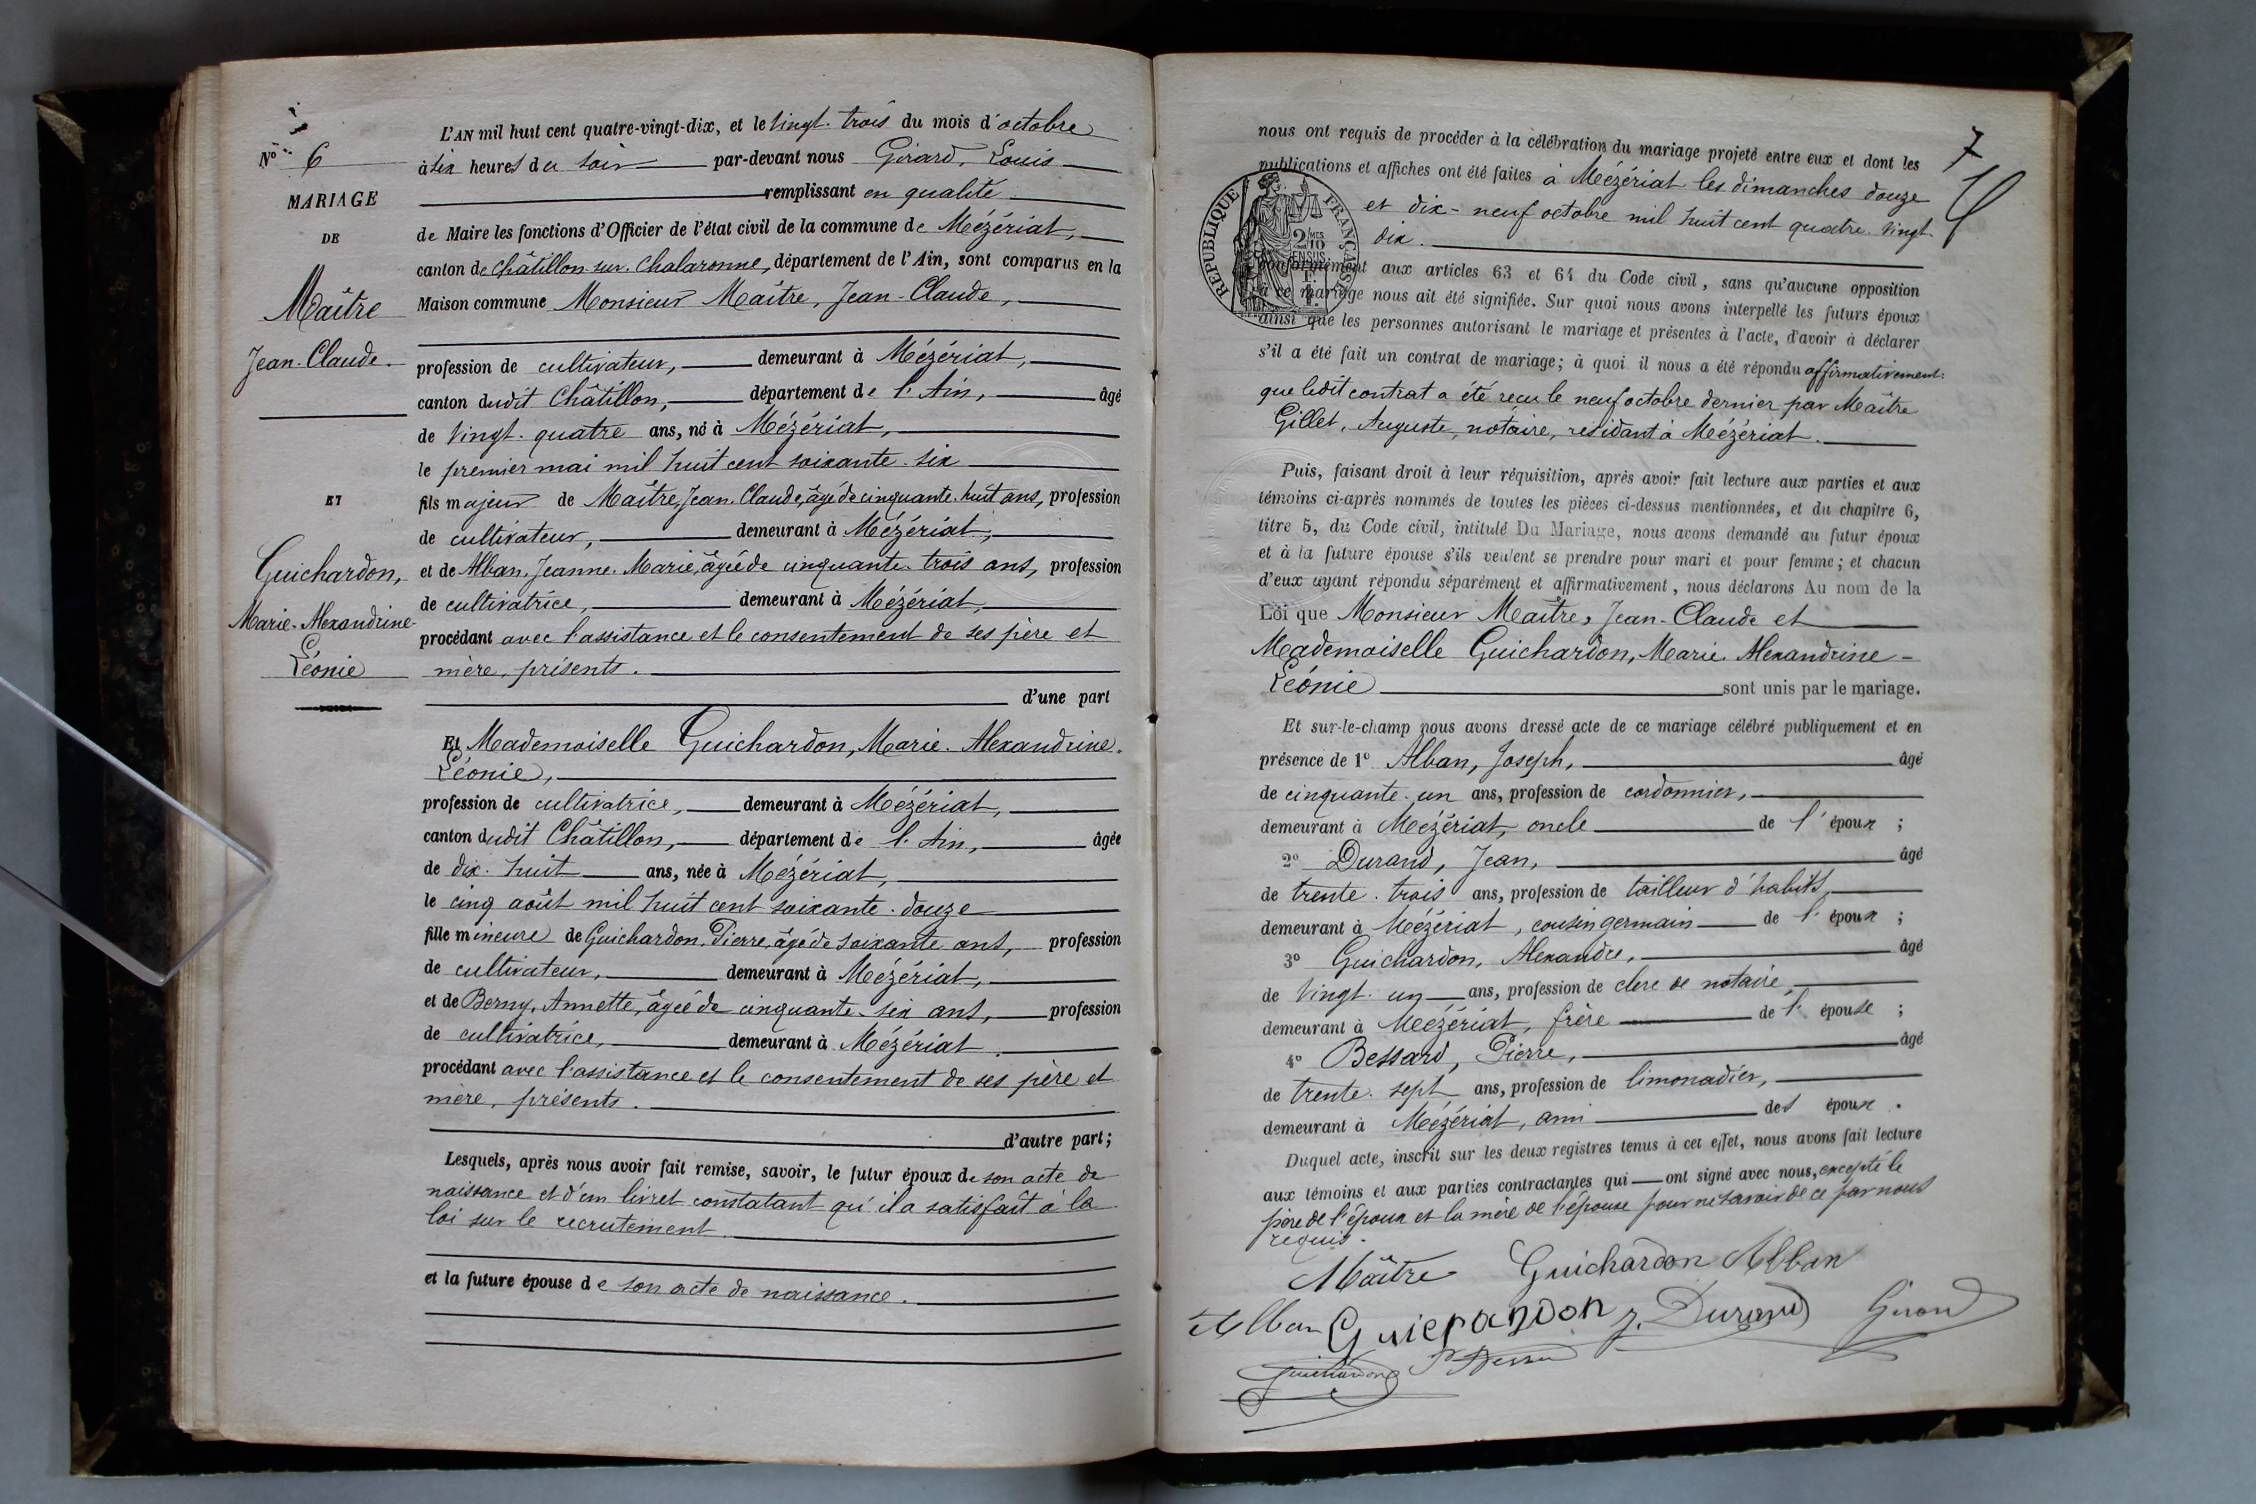 N° 6
MARIAGE
DE
Maître
Jean-Claude.
ET
Guichardon,
Marie-Alexandrine-
Léonie
L'AN mil huit cent quatre-vingt-dix, et le vingt-trois du mois d'octobre
à six heures du soir par-devant nous Girard, Louis
remplissant en qualité
de Maire les fonctions d'Officier de l'état civil de la commune de Mézériat,
canton de Châtillon-sur-Chalaronne, département de l'Ain, sont comparus en la
Maison commune Monsieur Maître, Jean-Claude,
profession de cultivateur, demeurant à Mézériat,
canton dudit Châtillon, département de l'Ain, âgé
de vingt-quatre ans, né à Mézériat,
le premier mai mil huit cent soixante-six
fils majeur de Maître, Jean-Claude, âgé de cinquante-huit ans, profession
de cultivateur, demeurant à Mézériat,
et de Alban, Jeanne-Marie, âgée de cinquante-trois ans, profession
de cultivatrice, demeurant à Mézériat,
procédant avec l'assistance et le consentement de ses père et
mère, présents.
d'une part
Et Mademoiselle Guichardon, Marie-Alexandrine-
Léonie,
profession de cultivatrice, demeurant à Mézériat,
canton dudit Châtillon, département de l'Ain, âgée
de dix-huit ans, née à Mézériat,
le cinq août mil huit cent soixante-douze
fille mineure de Guichardon, Pierre, âgé de soixante ans, profession
de cultivateur, demeurant à Mézériat,
et de Berny, Annette, âgée de cinquante-six ans, profession
de cultivatrice, demeurant à Mézériat.
procédant avec l'assistance et le consentement de ses père et
mère, présents.
d'autre part;
Lesquels, après nous avoir fait remise, savoir, le futur époux de son acte de
naissance et d'un livret constatant qu'il a satisfait à la
loi sur le recrutement.
et la future épouse de son acte de naissance.
7
nous ont requis de procéder à la célébration du mariage projeté entre eux et dont les
publications et affiches ont été faites à Mézériat les dimanches douze
et dix-neuf octobre mil huit cent quatre-vingt-
dix.
RÉPUBLIQUE FRANÇAISE
conformément aux articles 63 et 64 du Code civil, sans qu'aucune opposition
à ce mariage nous ait été signifiée. Sur quoi nous avons interpellé les futurs époux
ainsi que les personnes autorisant le mariage et présentes à l'acte, d'avoir à déclarer
s'il a été fait un contrat de mariage; à quoi il nous a été répondu affirmativement:
que ledit contrat a été reçu le neuf octobre dernier par Maître
Gillet, Auguste, notaire, résidant à Mézériat.
Puis, faisant droit à leur réquisition, après avoir fait lecture aux parties et aux
témoins ci-après nommés de toutes les pièces ci-dessus mentionnées, et du chapitre 6,
titre 5, du Code civil, intitulé Du Mariage, nous avons demandé au futur époux
et à la future épouse s'ils veulent se prendre pour mari et pour femme; et chacun
d'eux ayant répondu séparément et affirmativement, nous déclarons Au nom de la
Loi que Monsieur Maître, Jean-Claude et
Mademoiselle Guichardon, Marie-Alexandrine-
Léonie sont unis par le mariage.
Et sur-le-champ nous avons dressé acte de ce mariage célébré publiquement et en
présence de 1° Alban, Joseph, âgé
de cinquante-un ans, profession de cordonnier,
demeurant à Mézériat, oncle de l'époux;
2° Durand, Jean, âgé
de trente-trois ans, profession de tailleur d'habits,
demeurant à Mézériat, cousin germain de l'époux;
3° Guichardon, Alexandre, âgé
de vingt-un ans, profession de clerc de notaire,
demeurant à Mézériat, frère de l'épouse;
4° Bessard, Pierre, âgé
de trente-sept ans, profession de limonadier,
demeurant à Mézériat, ami des époux.
Duquel acte, inscrit sur les deux registres tenus à cet effet, nous avons fait lecture
aux témoins et aux parties contractantes qui ont signé avec nous, excepté le
père de l'époux et la mère de l'épouse pour ne savoir de ce par nous
requis.
Maître Guichardon Alban
Alban Guicrardon J. Durand Girard
Guichardon P. Bessard